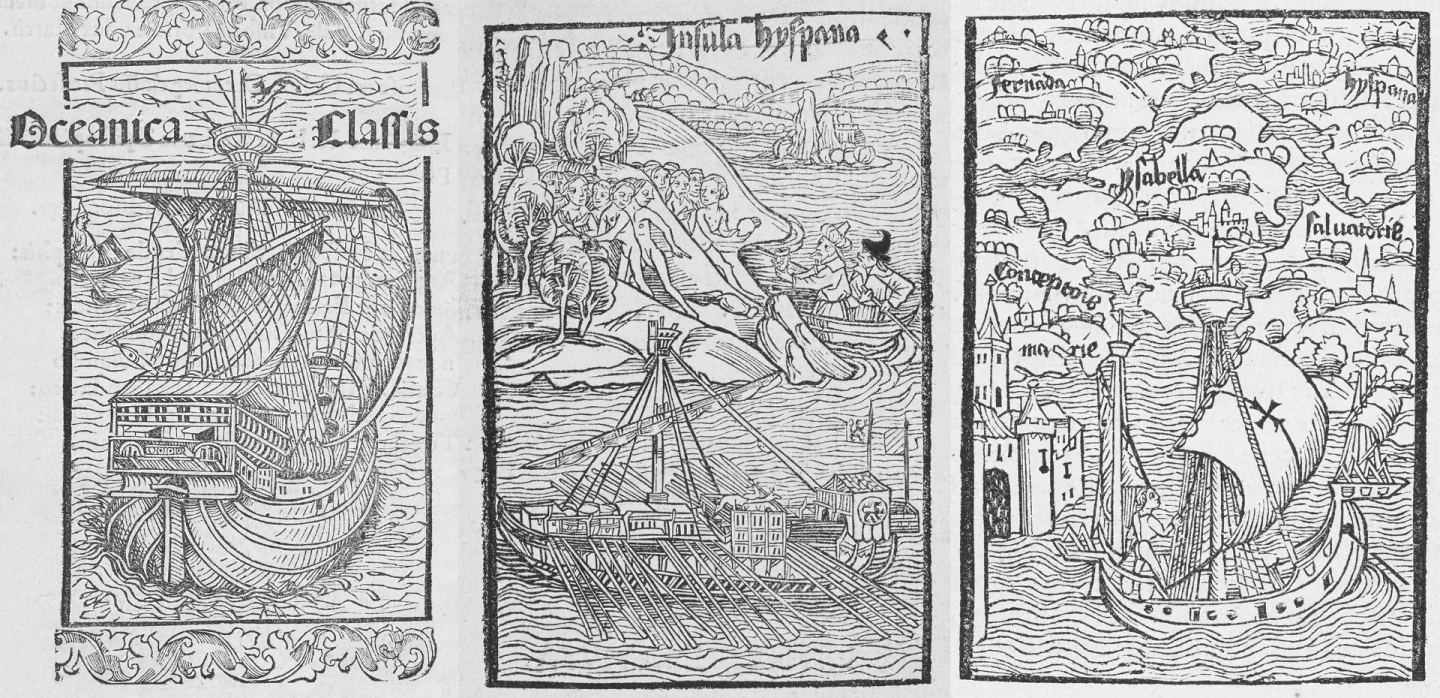 Oceanica Classis
Insula hyspana
fernada
hyspana
ysabella
saluatorie
Conceptoie
marie